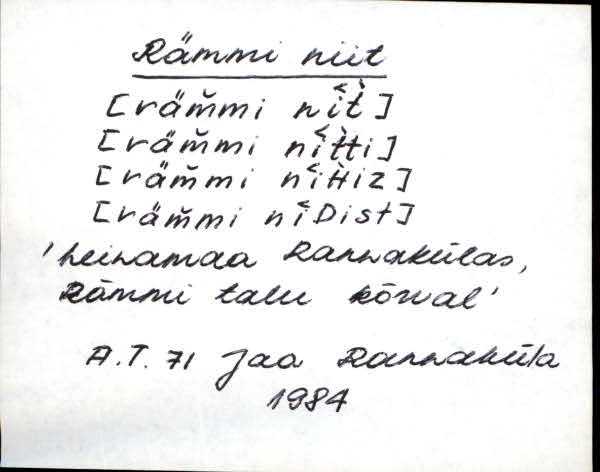 Rämmi niit
[räm̆mi nî̀t̀]
[räm̆mi nî̀t̀ti]
[räm̆mi nî̀t̀tiz]
[räm̆mi nîDist]
'heinamaa Rannakülas,
Rämmi talu kõrval'
A.T. 71 Jaa Rannaküla
1984